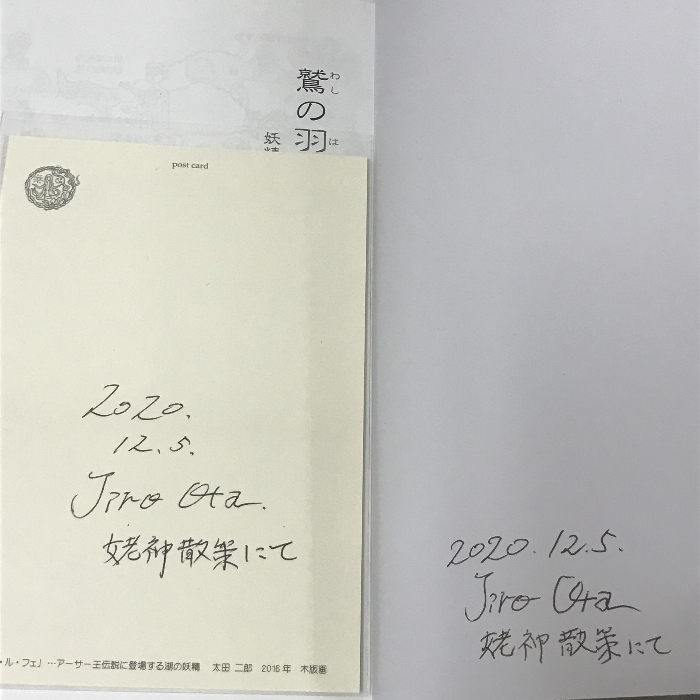 鷲の羽
わし
は
妖精
post card
2020.
12.5.
Jiro Ota.
姥神散策にて
・ル・フェ」…アーサー王伝説に登場する湖の妖精 太田 二郎 2016年 木版画
2020.12.5.
Jiro Ota
姥神散策にて